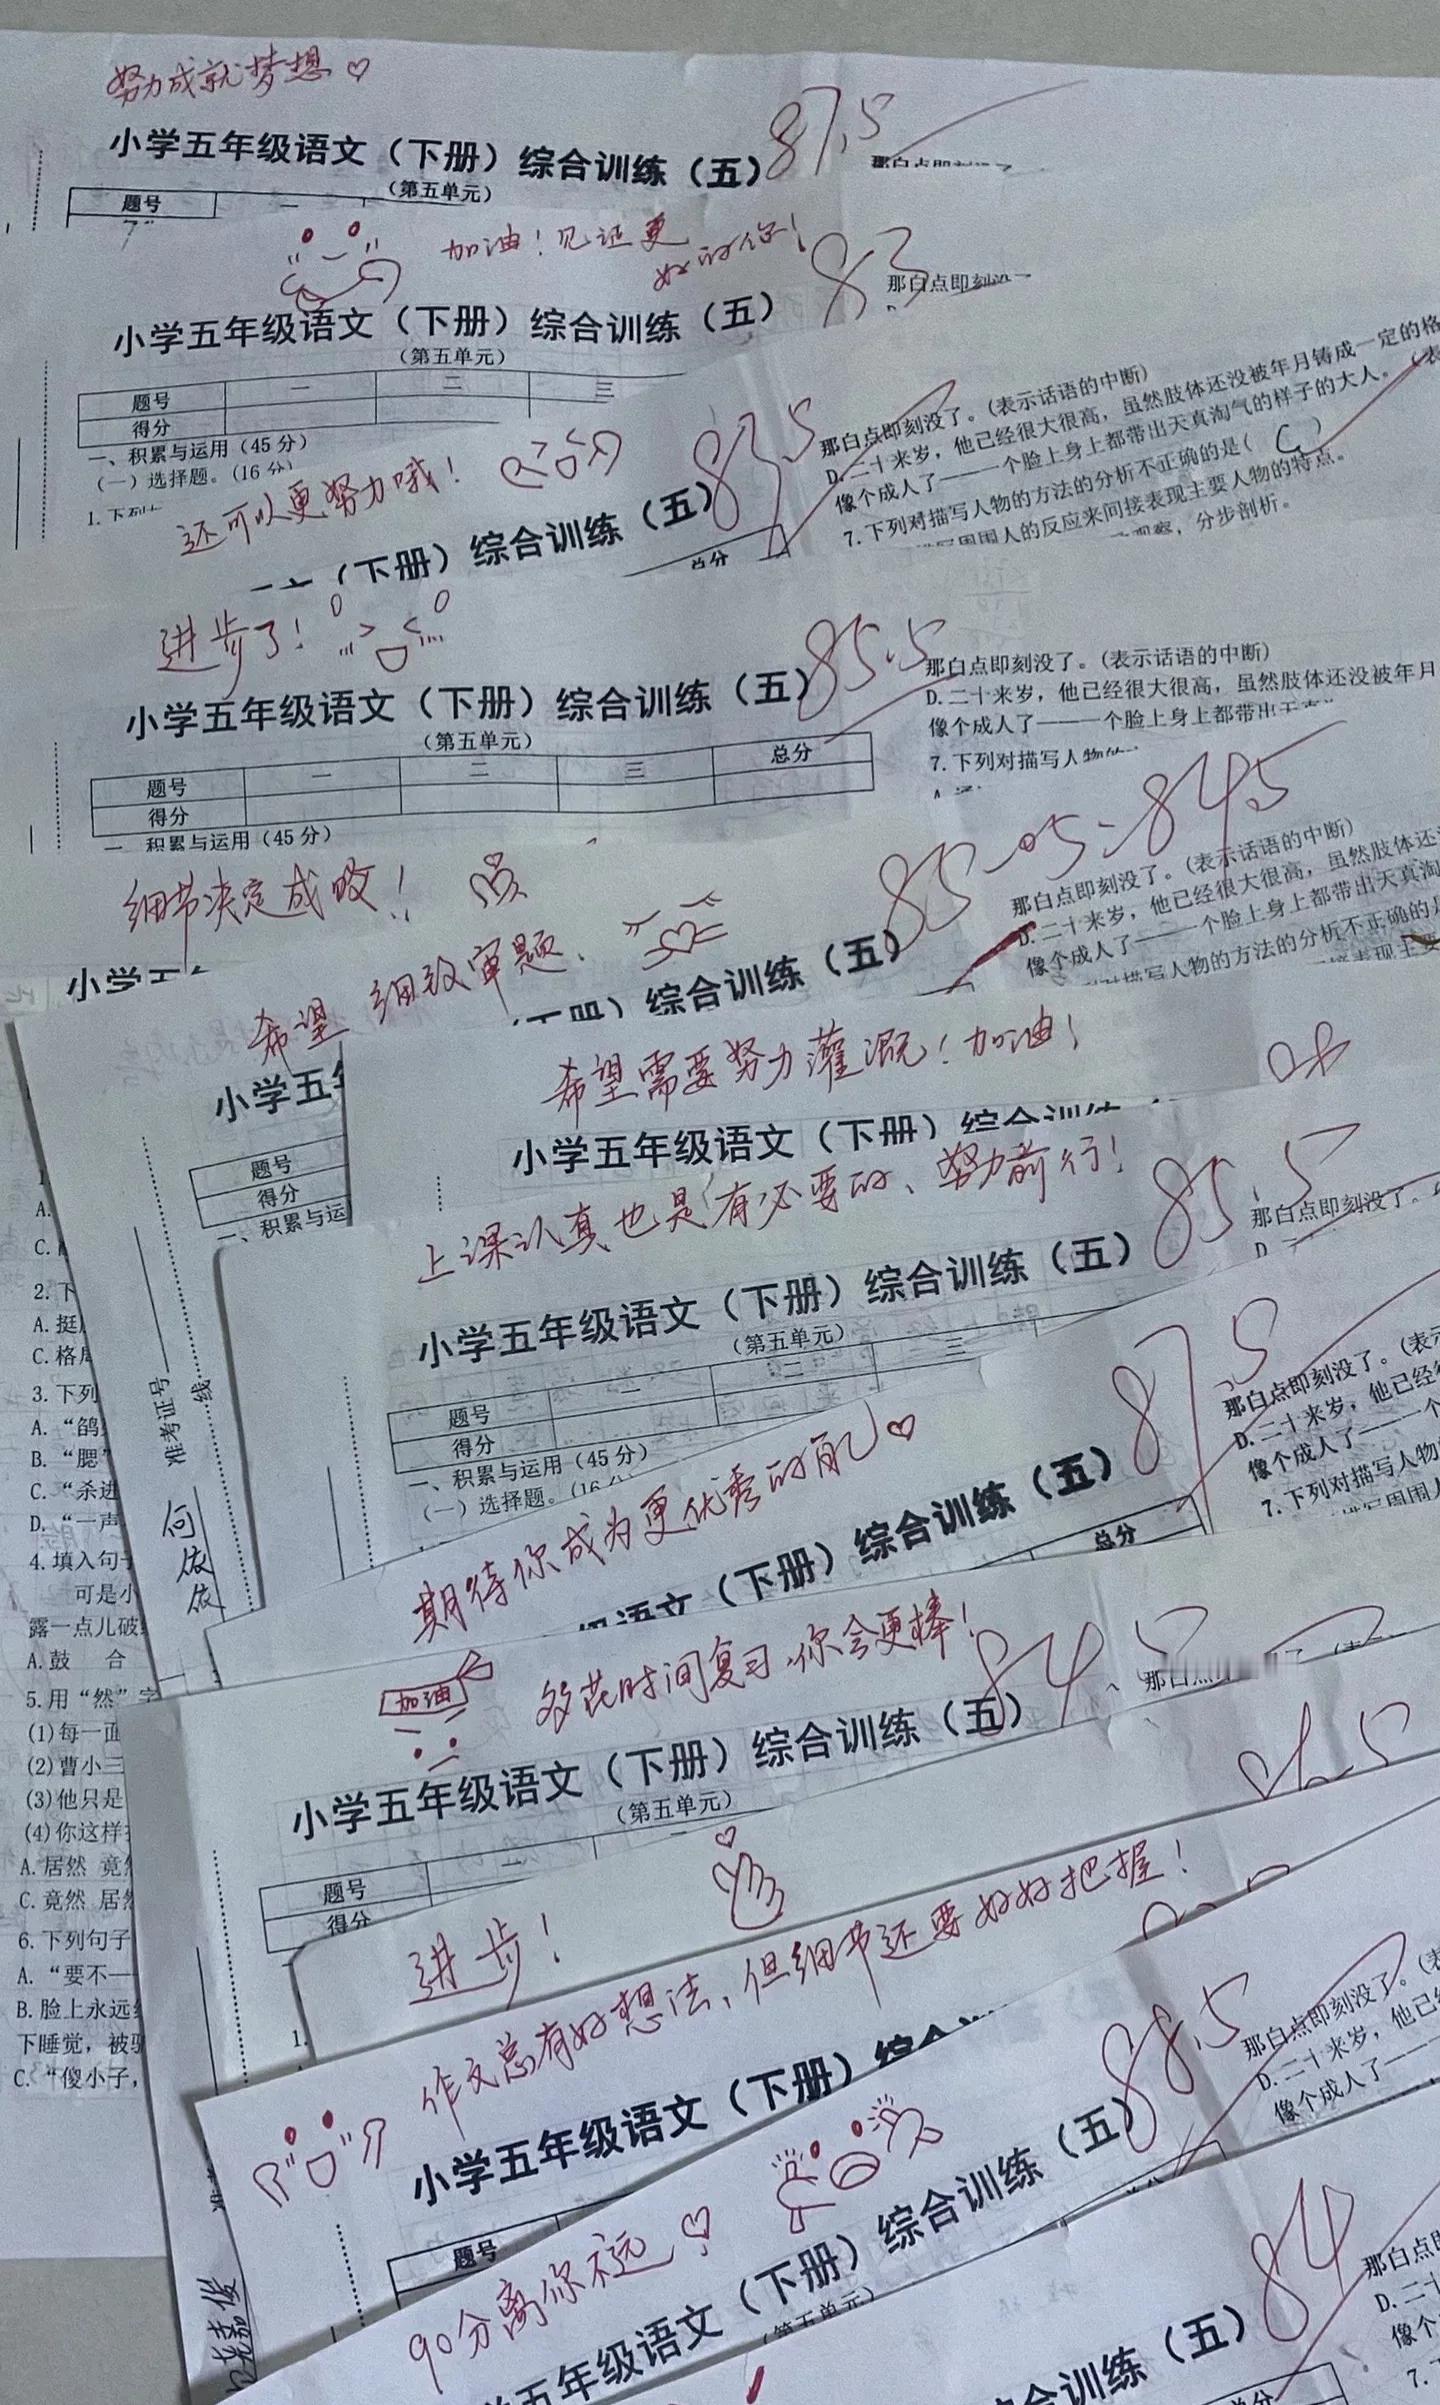 努力成就梦想
小学五年级语文（下册）综合训练（五）
87.5
（第五单元）
题号 一
加油！见证更
好的你！
83
那白点即刻没
小学五年级语文（下册）综合训练（五）
（第五单元）
题号 一 二 三
得分
一、积累与运用（45分）
（一）选择题。（16分）
1.下列
还可以更努力哦！
83.5
（下册）综合训练（五）
总分
那白点即刻没了。(表示话语的中断)
D.二十来岁，他已经很大很高，虽然肢体还没被年月铸成一定的格
像个成人了——一个脸上身上都带出天真淘气的样子的大人。（表
7.下列对描写人物的方法的分析不正确的是（ C ）
周围人的反应来间接表现主要人物的特点。
观察，分步剖析。
进步了！
85.5
小学五年级语文（下册）综合训练（五）
（第五单元）
题号 一 二 三 总分
得分
一、积累与运用（45分）
那白点即刻没了。(表示话语的中断)
D.二十来岁，他已经很大很高，虽然肢体还没被年月
像个成人了——一个脸上身上都带出天真
7.下列对描写人物的
细节决定成败！
小学五
85-0.5=84.5
希望细致审题、
综合训练（五）
那白点即刻没了。(表示话语的中断)
D.二十来岁，他已经很大很高，虽然肢体还
像个成人了——一个脸上身上都带出天真淘
对描写人物的方法的分析不正确的是
小学五年
题号
得分
一、积累与运
希望需要努力灌溉！加油！
小学五年级语文（下册）综合训练
上课认真也是有必要的、努力前行！
85.5
小学五年级语文（下册）综合训练（五）
（第五单元）
题号 一 二 三
得分
一、积累与运用（45分）
（一）选择题。（16分
那白点即刻没了。
D
期待你成为更优秀的自己
87.5
级语文（下册）综合训练（五）
总分
那白点即刻没了。(表示
D.二十来岁，他已经
像个成人了——一个
7.下列对描写人物
准考证号
线
何依依
加油
多花时间复习，你会更棒！
84.5
小学五年级语文（下册）综合训练（五）
（第五单元）
题号 一
得分
那白点即刻没了。(表
进步！
1.
作文总有好想法，但细节还要好好把握！
小学五年级语文（下册）综合
题号
90分离你不远
88.5
小学五年级语文（下册）综合训练（五）
（第五单元）
那白点即刻没了。(表
D.二十来岁，他已
像个成人了——
84
小学五年级语文（下册）综合训练（五）
总分
那白点即
D.二十
像个
7.
A.
C.
2.下
A.挺
C.格
3.下列
A.“鸽
B.“腮”
C.“杀进
D.“一声
4.填入句子
可是小
露一点儿破
A.鼓 合
5.用“然”字
(1)每一面
(2)曹小三
(3)他只是
(4)你这样
A.居然 竟然
C.竟然 居然
6.下列句子
A.“要不—
B.脸上永远
下睡觉，被
C.“傻小子，